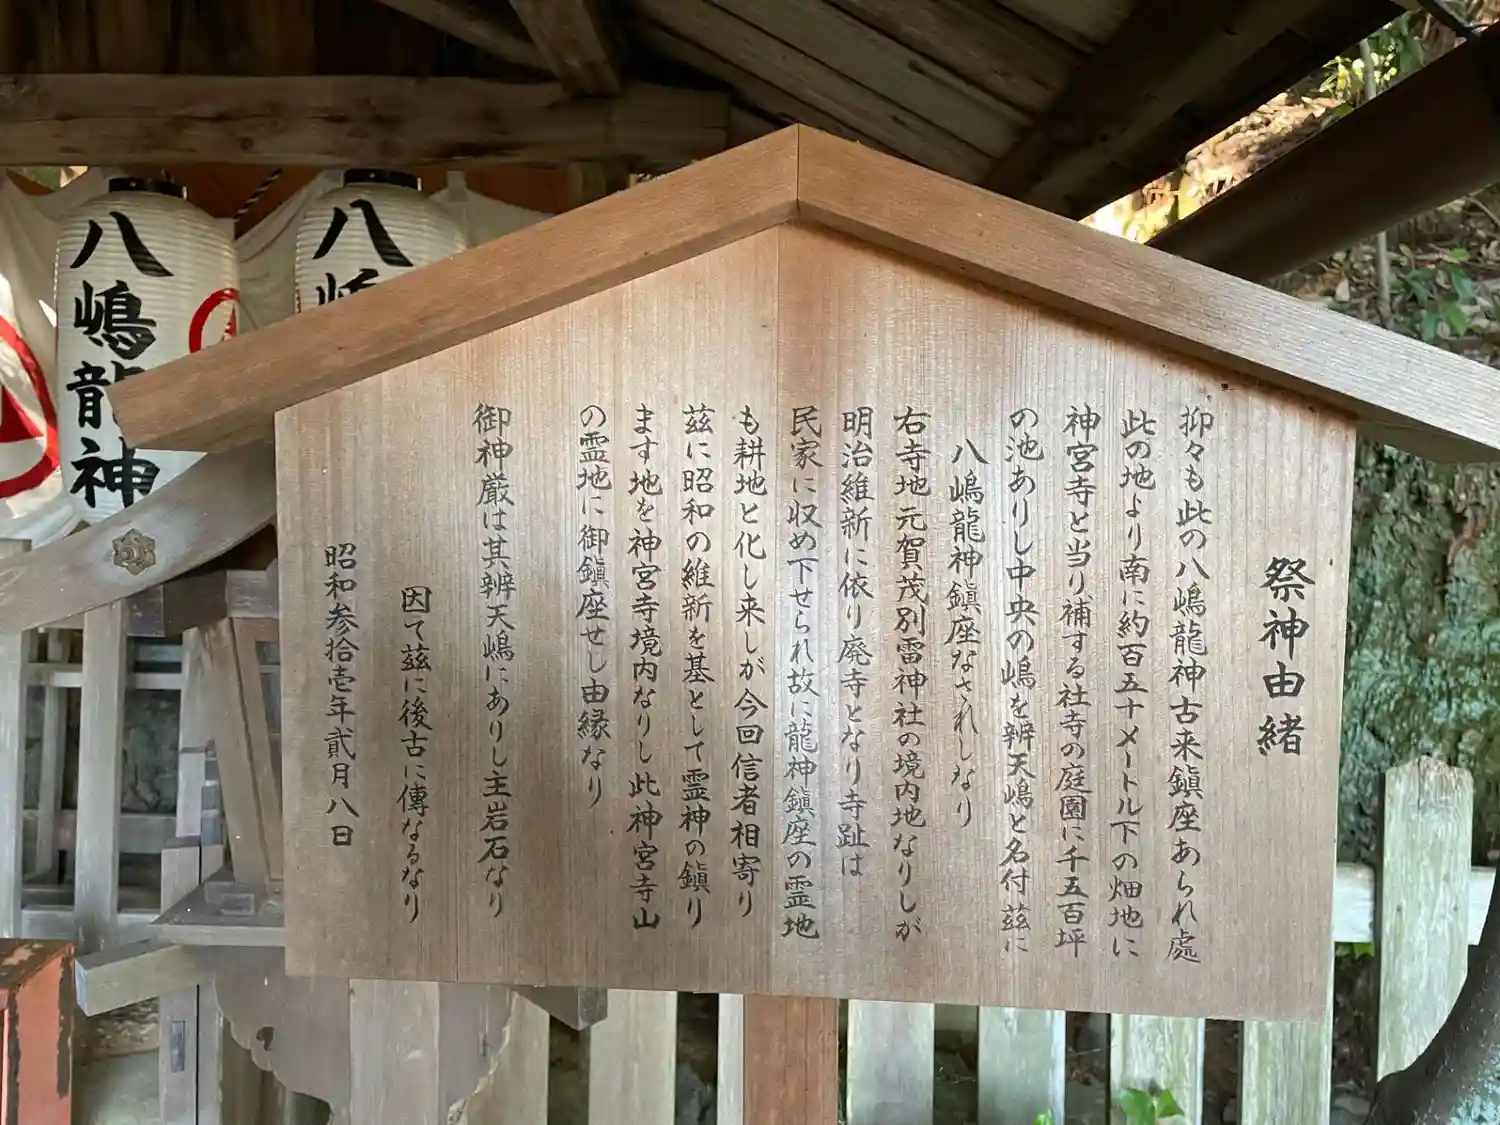 祭神由緒
抑々も此の八嶋龍神古来鎮座あられ處
此の地より南に約百五十メートル下の畑地に
神宮寺と当り補する社寺の庭園に千五百坪
の池ありし中央の嶋を辨天嶋と名付茲に
八嶋龍神鎮座なされしなり
右寺地元賀茂別雷神社の境内地なりしが
明治維新に依り廃寺となり寺趾は
民家に収め下せられ故に龍神鎮座の霊地
も耕地と化し来しが今回信者相寄り
茲に昭和の維新を基として霊神の鎮り
ます地を神宮寺境内なりし此神宮寺山
の霊地に御鎮座せし由縁なり
御神厳は其辨天嶋にありし主岩石なり
因て茲に後古に傳なるなり
昭和参拾壱年貳月八日
八嶋龍神
八嶋